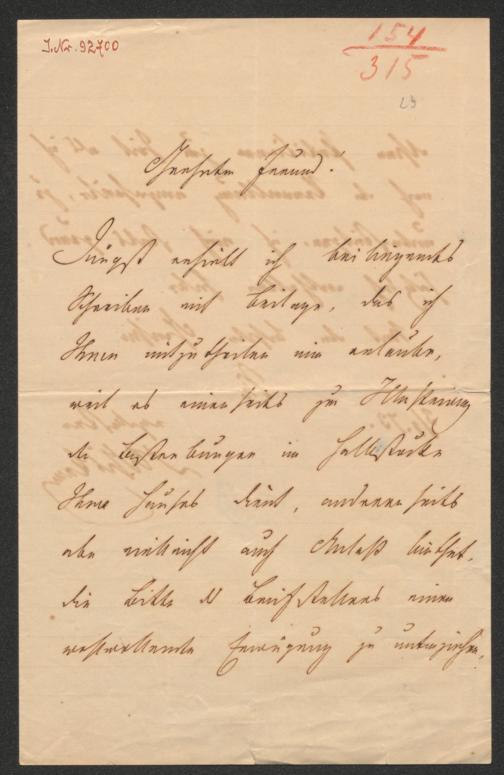 I.Nr. 92700
154
315
Geehrter Freund!
Jüngst erhielt ich beiliegendes
Schreiben mit Beilage, das ich
Ihnen mitzutheilen mir erlaube,
weil es einerseits zur Illustrirung
der Bestrebungen im
Ihres Hauses dient, andererseits
aber vielleicht auch Anlaß bietet,
die Bitte des Briefstellers einer
wohlwollenden Erwägung zu unterziehen.